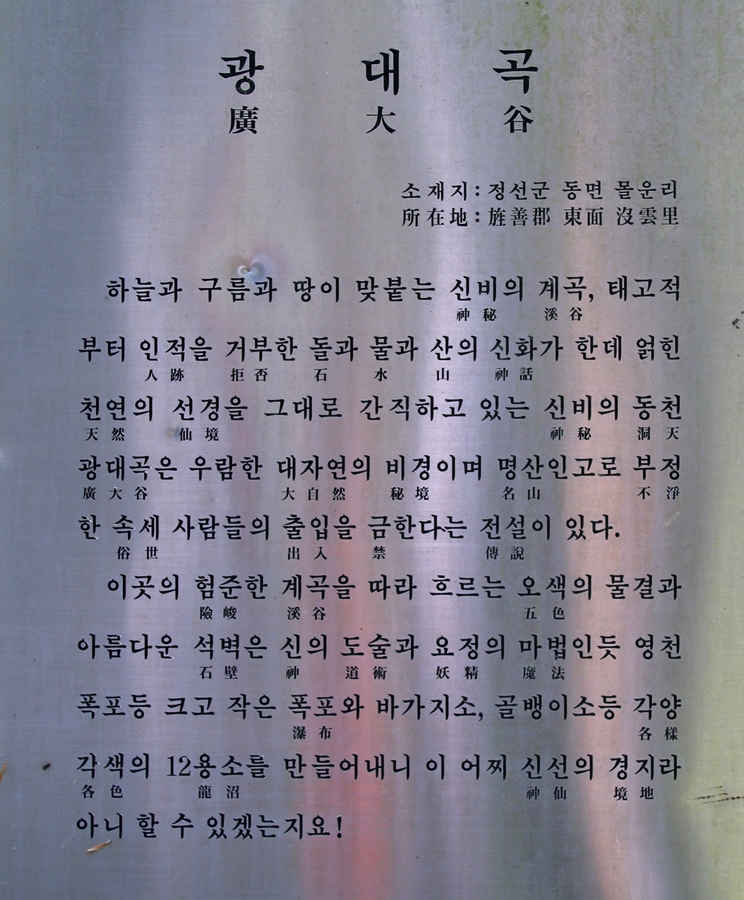 광 대 곡
廣 大 谷
소재지: 정선군 동면 몰운리
所在地: 旌善郡 東面 沒雲里
하늘과 구름과 땅이 맞붙는 신비의 계곡, 태고적
神秘 溪谷
부터 인적을 거부한 돌과 물과 산의 신화가 한데 얽힌
人跡 拒否 石 水 山 神話
천연의 선경을 그대로 간직하고 있는 신비의 동천
天然 仙境 神秘 洞天
광대곡은 우람한 대자연의 비경이며 명산인고로 부정
廣大谷 大自然 秘境 名山 不淨
한 속세 사람들의 출입을 금한다는 전설이 있다.
俗世 出入 禁 傳說
이곳의 험준한 계곡을 따라 흐르는 오색의 물결과
險峻 溪谷 五色
아름다운 석벽은 신의 도술과 요정의 마법인듯 영천
石壁 神 道術 妖精 魔法
폭포등 크고 작은 폭포와 바가지소, 골뱅이소등 각양
瀑布 各樣
각색의 12용소를 만들어내니 이 어찌 신선의 경지라
各色 龍沼 神仙 境地
아니 할 수 있겠는지요!